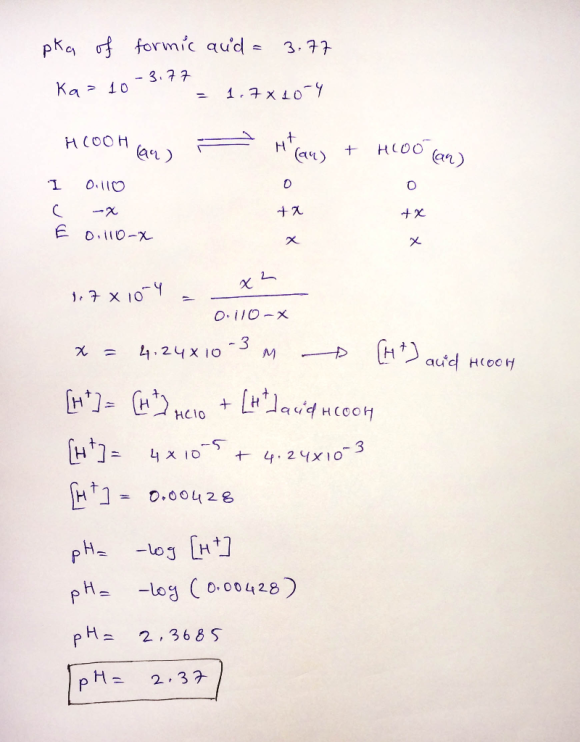 pKa of formic acid = 3.77
Ka = 10^-3.77 = 1.7 x 10^-4
HCOOH (aq) ⇌ H^+ (aq) + HCOO^- (aq)
I 0.110 0 0
C -x +x +x
E 0.110-x x x
1.7 x 10^-4 = x^2 / 0.110-x
x = 4.24 x 10^-3 M → [H^+] acid HCOOH
[H^+] = [H^+] HClO + [H^+] acid HCOOH
[H^+] = 4 x 10^-5 + 4.24 x 10^-3
[H^+] = 0.00428
pH = -log [H^+]
pH = -log (0.00428)
pH = 2.3685
pH = 2.37